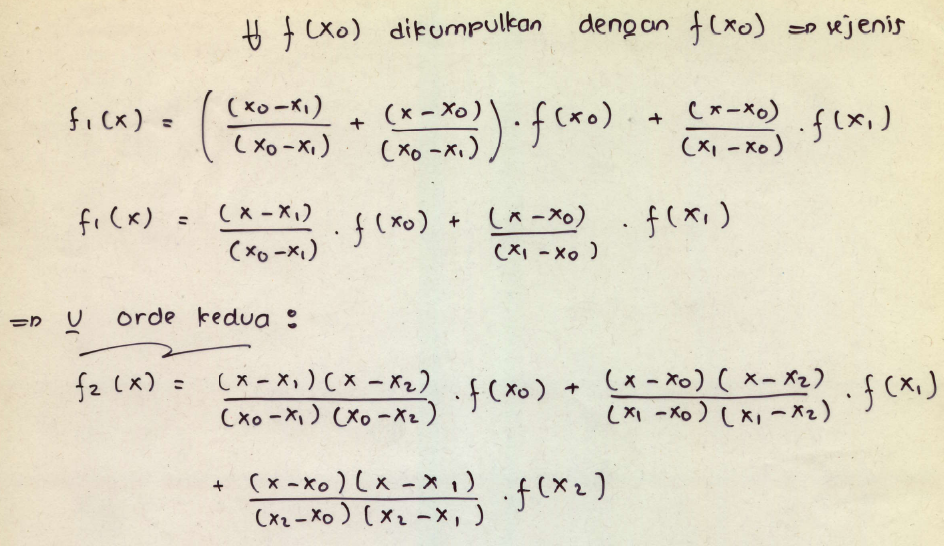 ⇓ f(x0) dikumpulkan dengan f(x0) ⇒ sejenis
f1(x) = ( (x0-x1)/(x0-x1) + (x-x0)/(x0-x1) ) . f(x0) + (x-x0)/(x1-x0) . f(x1)
f1(x) = (x-x1)/(x0-x1) . f(x0) + (x-x0)/(x1-x0) . f(x1)
⇒ U orde kedua :
f2(x) = (x-x1)(x-x2)/(x0-x1)(x0-x2) . f(x0) + (x-x0)(x-x2)/(x1-x0)(x1-x2) . f(x1)
+ (x-x0)(x-x1)/(x2-x0)(x2-x1) . f(x2)